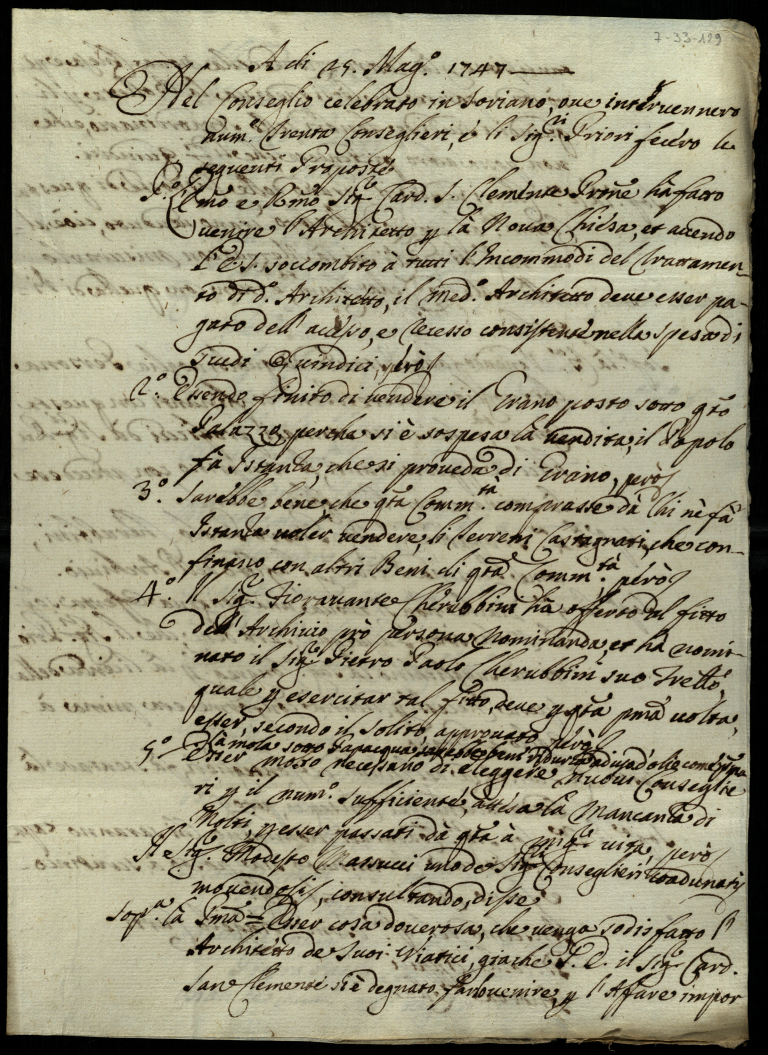 7-33-129
A di 25. Mag.o 1747
Nel Conseglio celebrato in Soriano, ove intervennero
num.o Trenta Conseglieri, e li Sig.ri Priori fecero le
seguenti Proposte
P.o Emo e Rmo Sig.r Card. S. Clemente Prone ha fatto
venire l'Architetto p la Nova Chiesa, et avendo
l'E. S. soccombito à tutti l'Incommodi del Trattamen-
to di d.o Architetto, il med.o Architetto deve esser pa-
gato dell'acceso, e recesso consistente nella spesa di
scudi Quindici, però
2.o Essendo finito di vendere il Grano posto sotto q.to
Palazzo, perche si è sospesa la vendita, il Popolo
fà Istanza, che si proveda di Grano, però
3.o Sarebbe bene che q.ta Comm.tà comprasse dà chi nè fà
Istanza voler vendere, li Terreni Castagnati, che con-
finano con altri Beni di q.ta Comm.tà però
4.o Il Sig.r Fioravante Cherubbini ha offerto al fitto
dell'Archivio prò persona nominanda, et hà nomi-
nato il Sig.r Pietro Paolo Cherubbini suo Frello
quale p esercitar tal fitto, deve p q.ta pma volta,
esser, secondo il solito, approvato però
La mola sotto
5.o Esser molto necessario di eleggere nuovi Conseglie
ri p il num.o sufficiente, attesa la Mancanza di
Molti, p esser passati dà q.ta à miglior vita, però
Il Sig.r Modesto Massucci uno de Sig.ri Conseglieri coadunati
movendosi, consultando, disse
Sop.a la Pma = Esser cosa doverosa, che venga sodisfatto l'
Architetto de suoi Viatici, giache S. E. il Sig.r Card.
San Clemente si è degnato farlo venire, p l'Affare impor